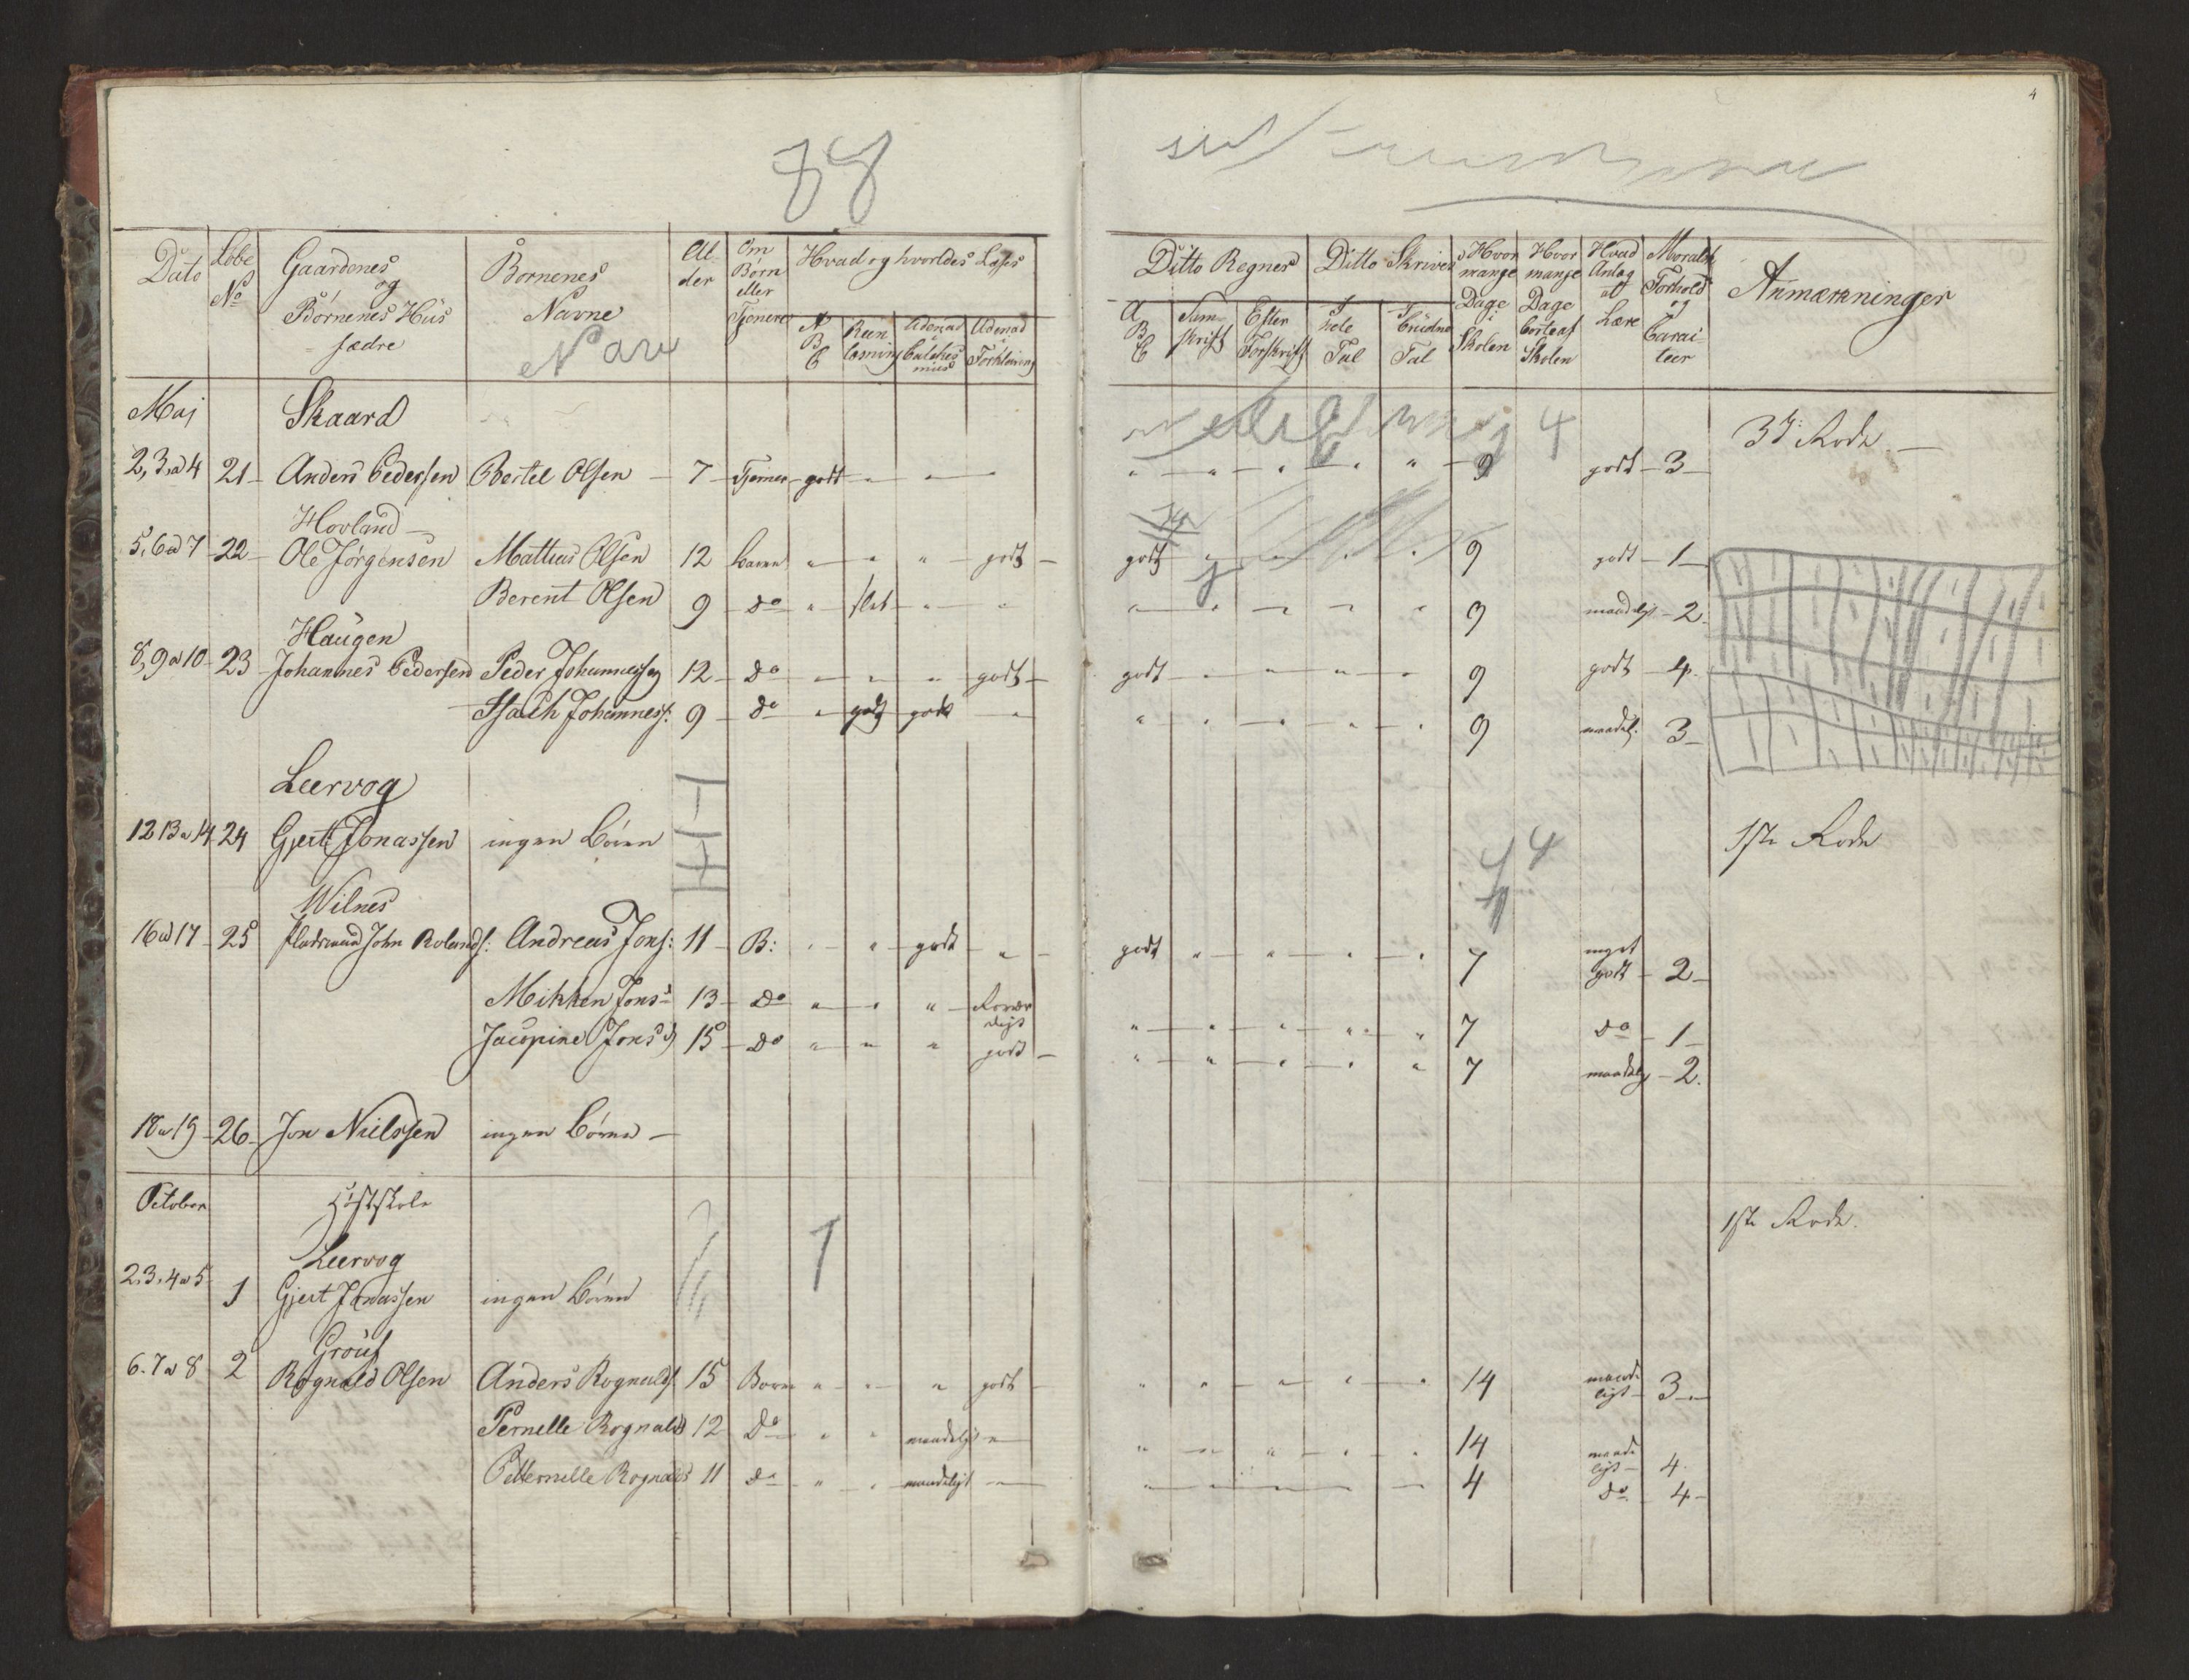 4
88
Dato
Løbe
No
Gaardenes
og
Børnenes Hus
fædre
Børnenes
Navne
Al-
der
Om
Børn
eller
Tjenere
Hvad og hvorldes Læses
A
B
C
Reen
læsning
Udenad
Catechis
mus
Udenad
i
Forklaring
Ditto Regnes
Ditto Skrives
A
B
C
Sam-
skrift
Efter
Forskrift
I
hele
Tal
I
brudne
Tal
Hvor
mange
Dage
i
Skolen
Hvor
mange
Dage
borte af
Skolen
Hvad
Anlag
at
Lære
Moralsk
Forhold
og
Carac-
teer
Anmærkninger
Maj Skaard 3die Rode
2, 3 a 4 21 Anders Pedersen Bertel Olsen 7 Tjener godt " " " " " " " " 9 godt 3
Hovland
5, 6 a 7 22 Ole Jørgensen Mathias Olsen 12 barn " " " godt godt " " " " 9 godt 1
Berent Olsen 9 do " slet " " " " " " " 9 maadeligt 2
Haugen
8, 9 a 10 23 Johannes Pedersen Peder Johannessen 12 do " " " godt godt " " " " 9 godt 4
Isach Johanness: 9 do " godt godt " " " " " " 9 maadel. 3
Leervog
12 13 a 14 24 Gjert Jonassen ingen Børn 1ste Rode
Wilnes
16 a 17 25 John Rolands: Andreas Jons: 11 B: " " godt " godt " " " " 7 meget godt 2
Mikken Jonsd 13 do " " " " " " " " 7 do 1
Jacopine Jonsd 15 do " " " godt " " " " " 7 maadelig 2.
18 a 19 26 Jon Nielssen ingen Børn
October Høstskole 1ste Rode.
Leervog
2, 3, 4 a 5 1 Gjert Jonassen ingen Børn
Grøus
6. 7 a 8 2 Rognald Olsen Anders Rognalds 15 Børn " " " godt " " " " " 14 maadeligt 3
Pernelle Rognalds 12 do " " maadeligt " " " " " " 14 maadeligt 4
Petternelle Rognalds 11 do " " maadeligt " " " " " " 4 do 4